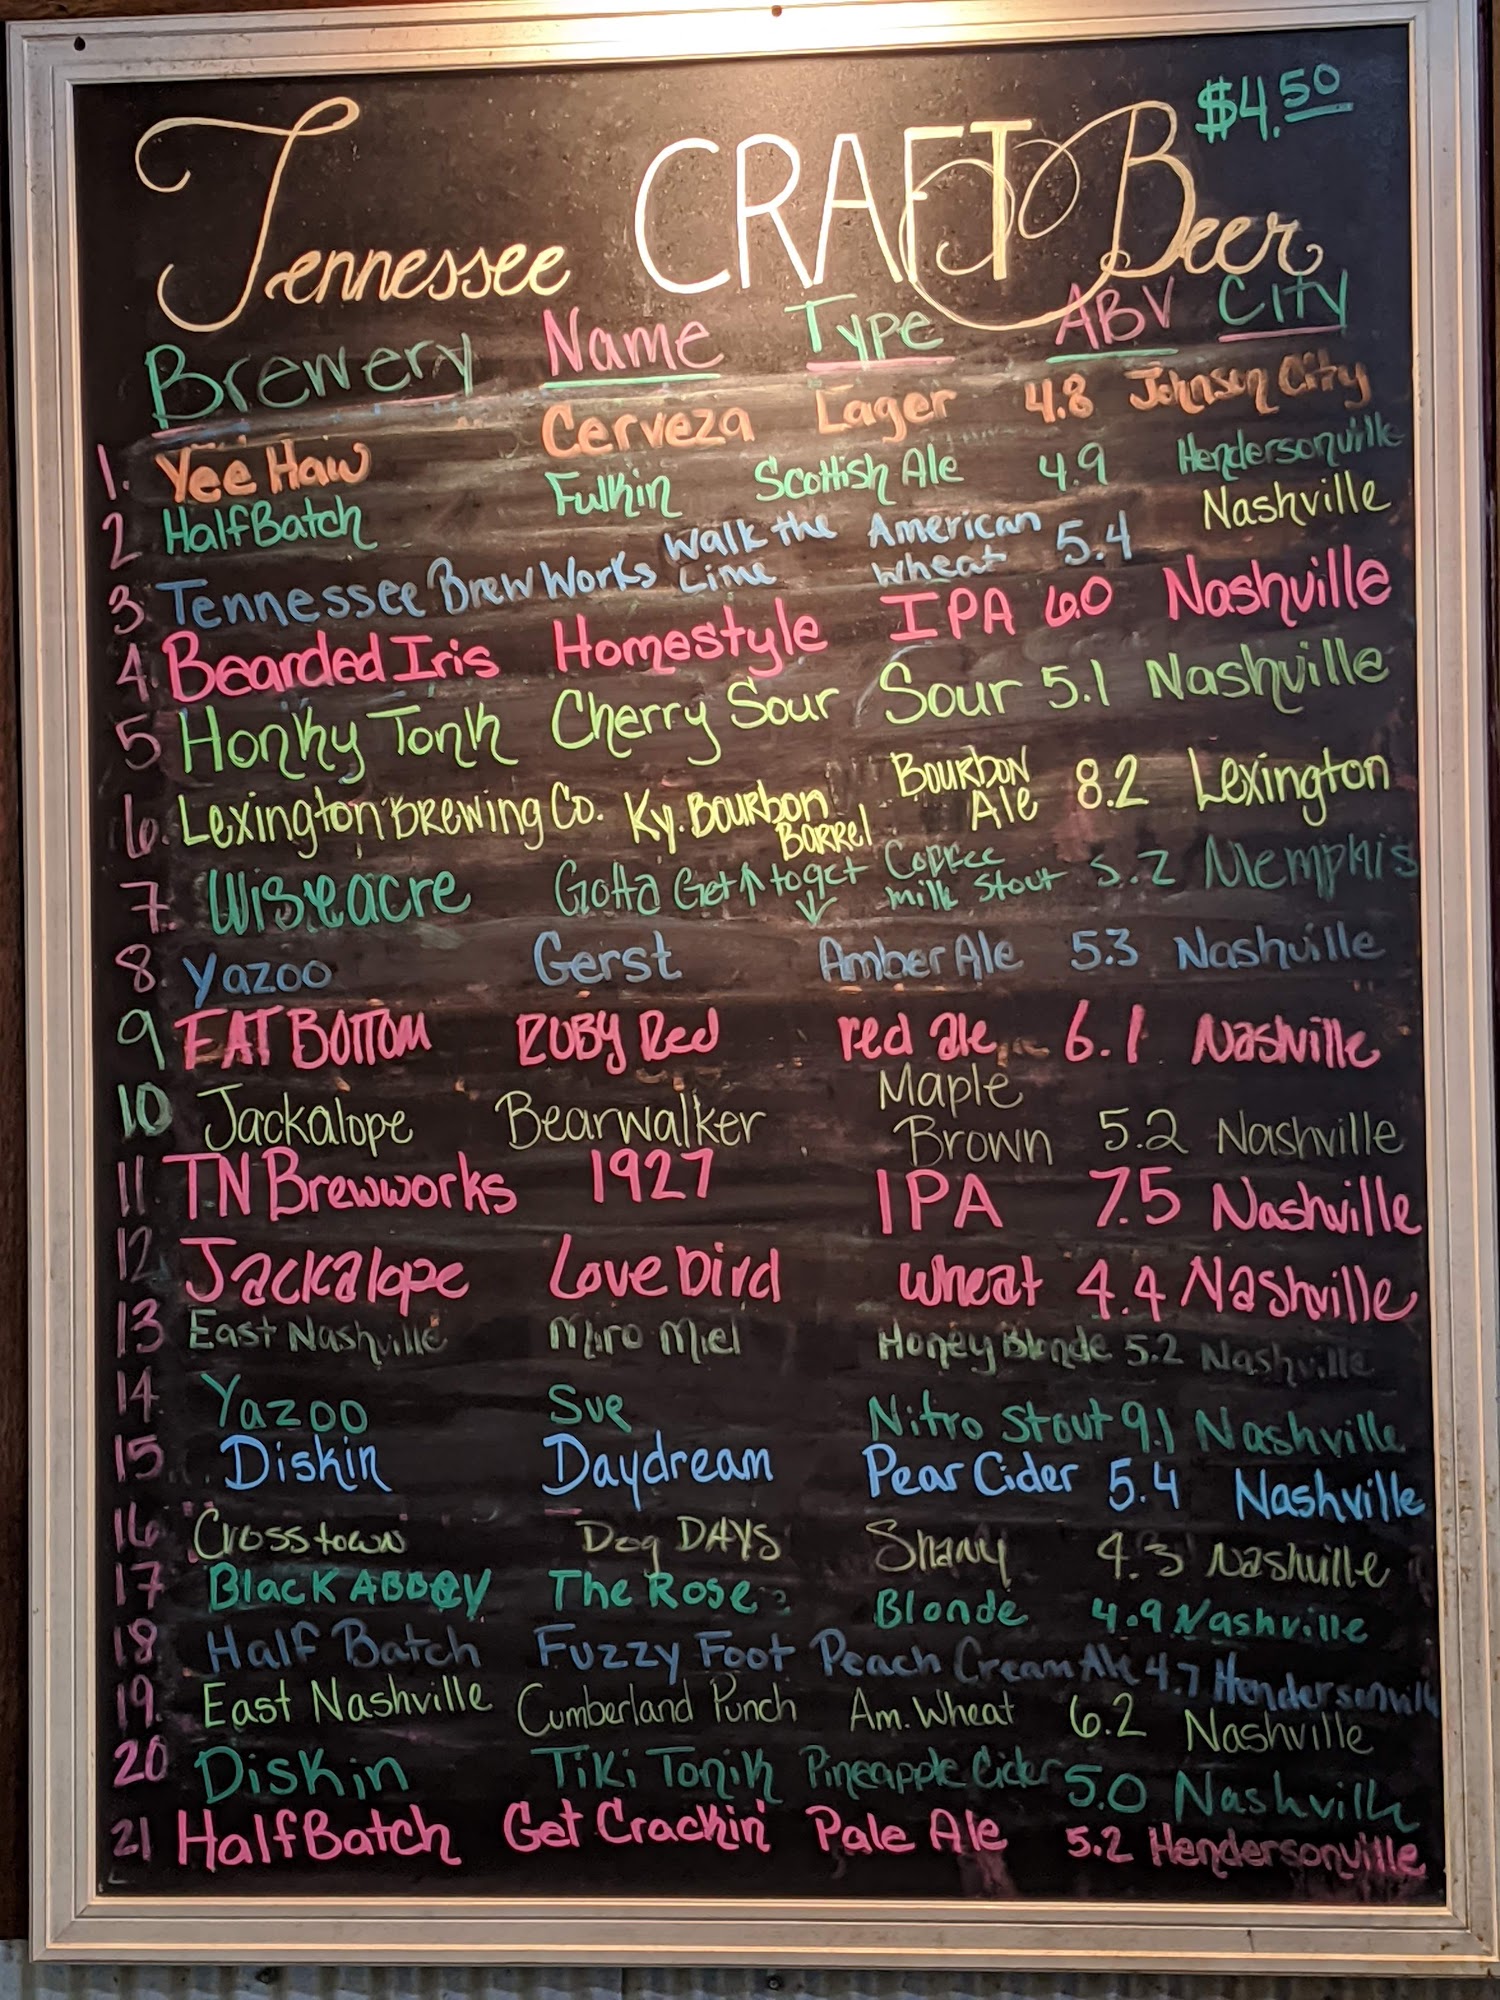 Tennessee CRAFT Beer $4.50
Brewery Name Type ABV City
1. Yee Haw Cerveza Lager 4.8 Johnson City
2 HalfBatch Fulkin Scottish Ale 4.9 Hendersonville
3. Tennessee Brew Works Walk the Lime American Wheat 5.4 Nashville
4. Bearded Iris Homestyle IPA 6.0 Nashville
5 Honky Tonk Cherry Sour Sour 5.1 Nashville
6. Lexington Brewing Co. Ky. Bourbon Barrel Bourbon Ale 8.2 Lexington
7. Wiseacre Gotta Get ↑ to get ↓ Coffee Milk Stout 5.2 Memphis
8. Yazoo Gerst Amber Ale 5.3 Nashville
9 FAT BOTTOM RUBY Red red ale 6.1 Nashville
10 Jackalope Bearwalker Maple Brown 5.2 Nashville
11. TN Brewworks 1927 IPA 7.5 Nashville
12 Jackalope Love bird wheat 4.4 Nashville
13 East Nashville Miro Miel Honey Blonde 5.2 Nashville
14 Yazoo Sue Nitro Stout 9.1 Nashville
15 Diskin Daydream Pear Cider 5.4 Nashville
16 Crosstown Dog DAYS Shany 4.3 Nashville
17 Black ABBEY The Rose Blonde 4.9 Nashville
18 Half Batch Fuzzy Foot Peach Cream Ale 4.7 Hendersonville
19. East Nashville Cumberland Punch Am. Wheat 6.2 Nashville
20 Diskin Tiki Tonik Pineapple Cider 5.0 Nashville
21 HalfBatch Get Crackin' Pale Ale 5.2 Hendersonville